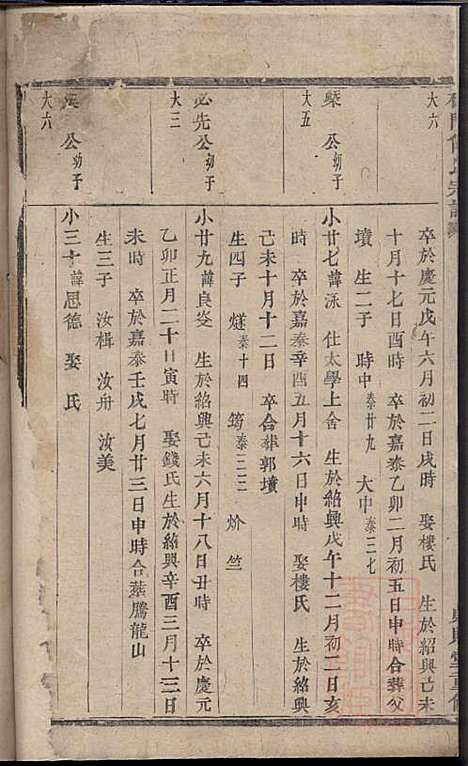 大六
卒於慶元戊午六月初二日戌時 娶樓氏 生於紹興己未
十月十七日酉時 卒於嘉泰乙卯二月初五日申時合葬父
墳 生二子 時中泰廿九 大中泰三七
大五
公幼子
小廿七諱泳 仕太學上舍 生於紹興戊午十二月初二日亥
時 卒於嘉泰辛酉五月十六日申時 娶樓氏 生於紹興
己未十月十二日 卒合葬郭墳
生四子 燧泰十四 筠泰三三 炌 竺
大三
必先公幼子
小廿九諱良炎 生於紹興己未六月十八日丑時 卒於慶元
乙卯正月二十日寅時 娶錢氏生於紹興辛酉三月十三日
未時 卒於嘉泰壬戌七月廿三日申時合葬騰龍山
生三子 汝楫 汝舟 汝美
大六
公幼子
小三十諱思德 娶 氏